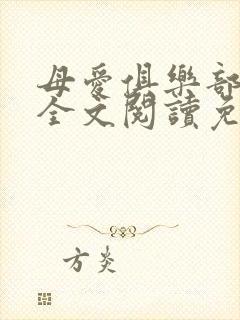 母愛俱樂部
全文閱讀免
方炎